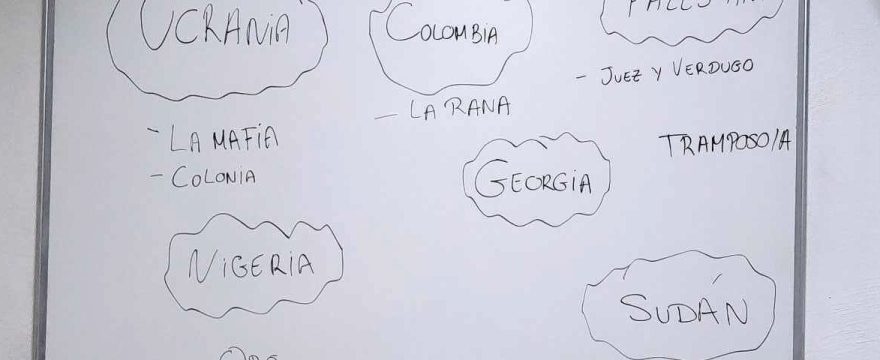 UCRANIA
COLOMBIA
- LA MAFIA
- COLONIA
- LA RANA
- JUEZ Y VERDUGO
TRAMPOSO/A
GEORGIA
NIGERIA
SUDÁN